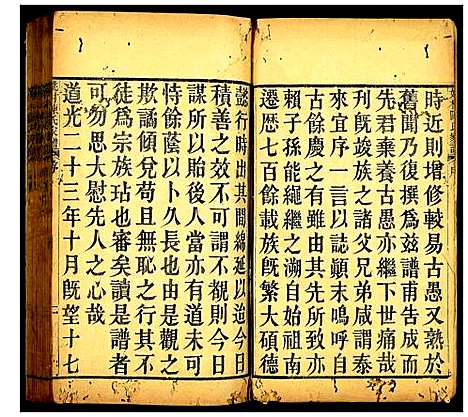 時近則增修較易古愚又熟於
舊聞乃復撰為茲譜甫告成而
先君棄養古愚亦繼下世痛哉
刊既竣族之諸父兄咸謂泰
來宜序一言以誌顛末嗚呼自
古餘慶之有雖由其先所積亦
賴子孫能繩繼之溯自始祖南
遷歷七百餘載族既繁大碩德
懿行時出其間綿延以迄今日
積善之效不可謂不覩則今日
謀所以貽後人當亦有道未可
恃餘蔭以卜久長也由是觀之
欺誦傾兌苟且無恥之行其不
徒為宗族玷也審矣讀是譜者
可勿思大慰先人之心哉
道光二十三年十月既望十七